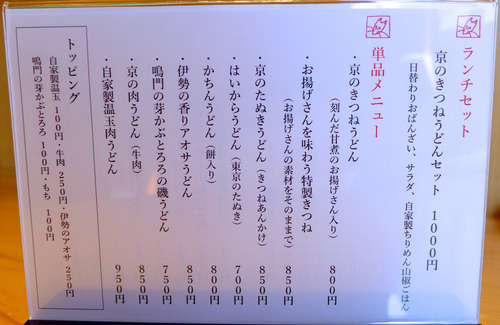 ランチセット
京のきつねうどんセット 1000円
日替わりおばんざい、サラダ、自家製ちりめん山椒ごはん
単品メニュー
・京のきつねうどん 800円
（刻んだ甘煮のお揚げさん入り）
・お揚げさんを味わう特製きつね 850円
（お揚げさんの素材をそのままで）
・京のたぬきうどん（きつねあんかけ） 850円
・はいからうどん（東京のたぬき） 700円
・かちんうどん（餅入り） 800円
・伊勢の香りアオサうどん 850円
・鳴門の芽かぶとろろの磯うどん 750円
・京の肉うどん（牛肉） 850円
・自家製温玉肉うどん 950円
トッピング
自家製温玉 100円・牛肉 250円・伊勢のアオサ 250円
鳴門の芽かぶとろろ 100円・もち 100円